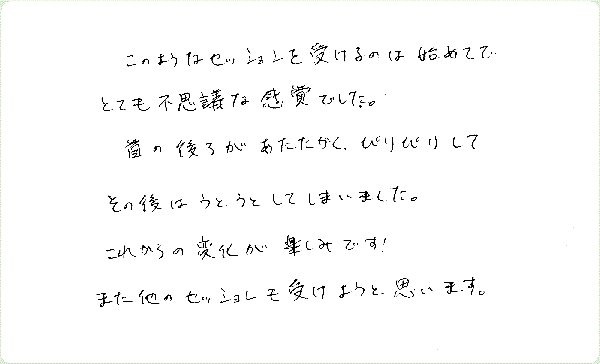 このようなセッションを受けるのは始めてで
とても不思議な感覚でした。
首の後ろがあたたかく、ぴりぴりして
その後はうとうとしてしまいました。
これからの変化が楽しみです!
また他のセッションも受けようと思います。